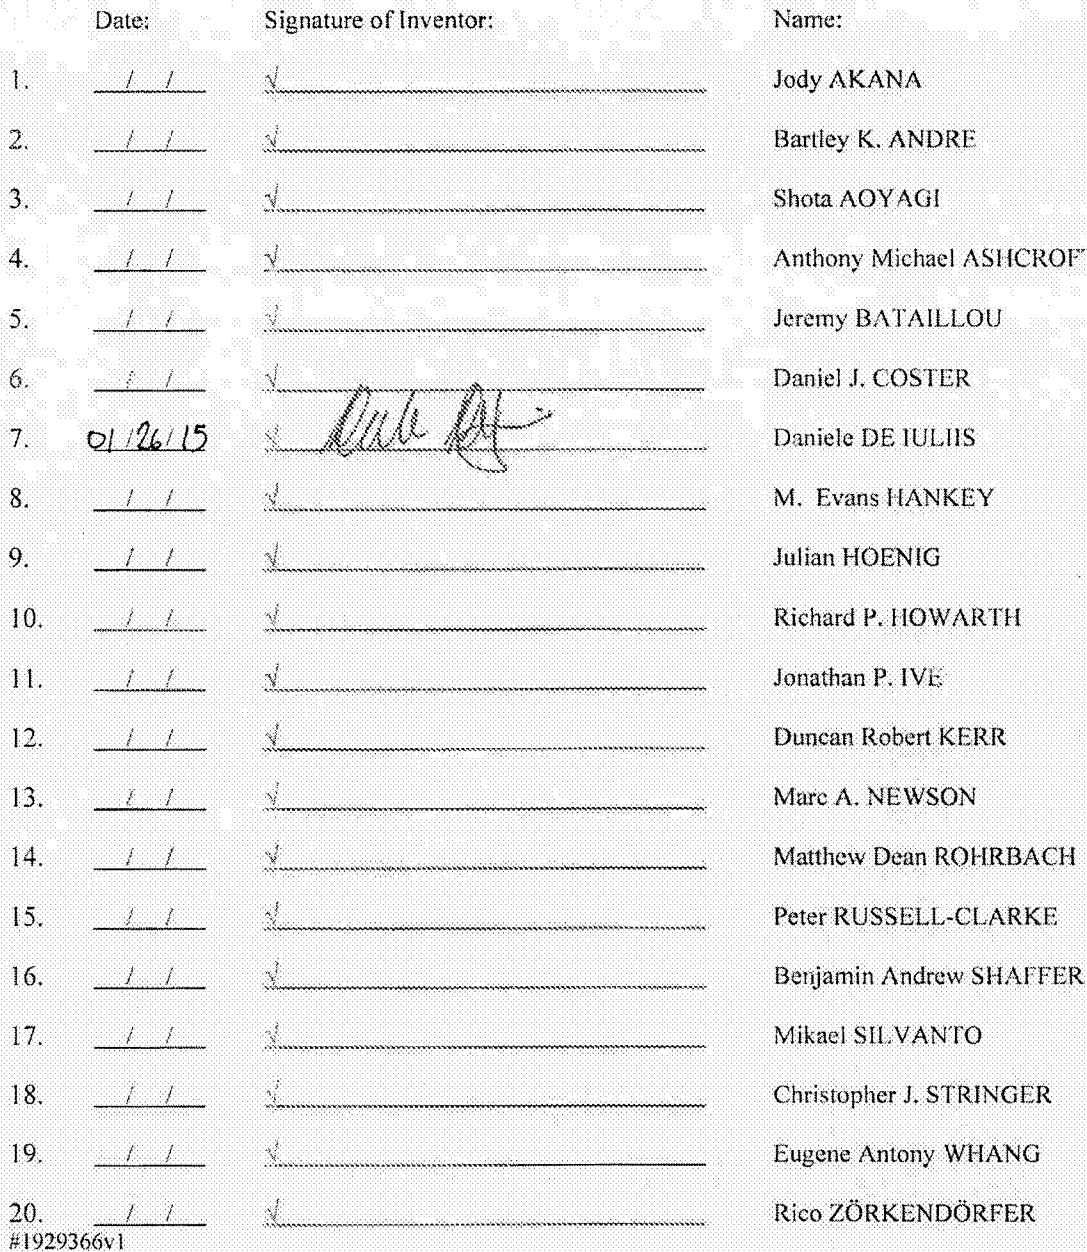 Date: Signature of Inventor: Name:
1. / / √ Jody AKANA
2. / / √ Bartley K. ANDRE
3. / / √ Shota AOYAGI
4. / / √ Anthony Michael ASHCROFT
5. / / √ Jeremy BATAILLOU
6. / / √ Daniel J. COSTER
7. 01/26/15 √ Daniele DE IULIIS
8. / / √ M. Evans HANKEY
9. / / √ Julian HOENIG
10. / / √ Richard P. HOWARTH
11. / / √ Jonathan P. IVE
12. / / √ Duncan Robert KERR
13. / / √ Marc A. NEWSON
14. / / √ Matthew Dean ROHRBACH
15. / / √ Peter RUSSELL-CLARKE
16. / / √ Benjamin Andrew SHAFFER
17. / / √ Mikael SILVANTO
18. / / √ Christopher J. STRINGER
19. / / √ Eugene Antony WHANG
20. / / √ Rico ZÖRKENDÖRFER
#1929366v1